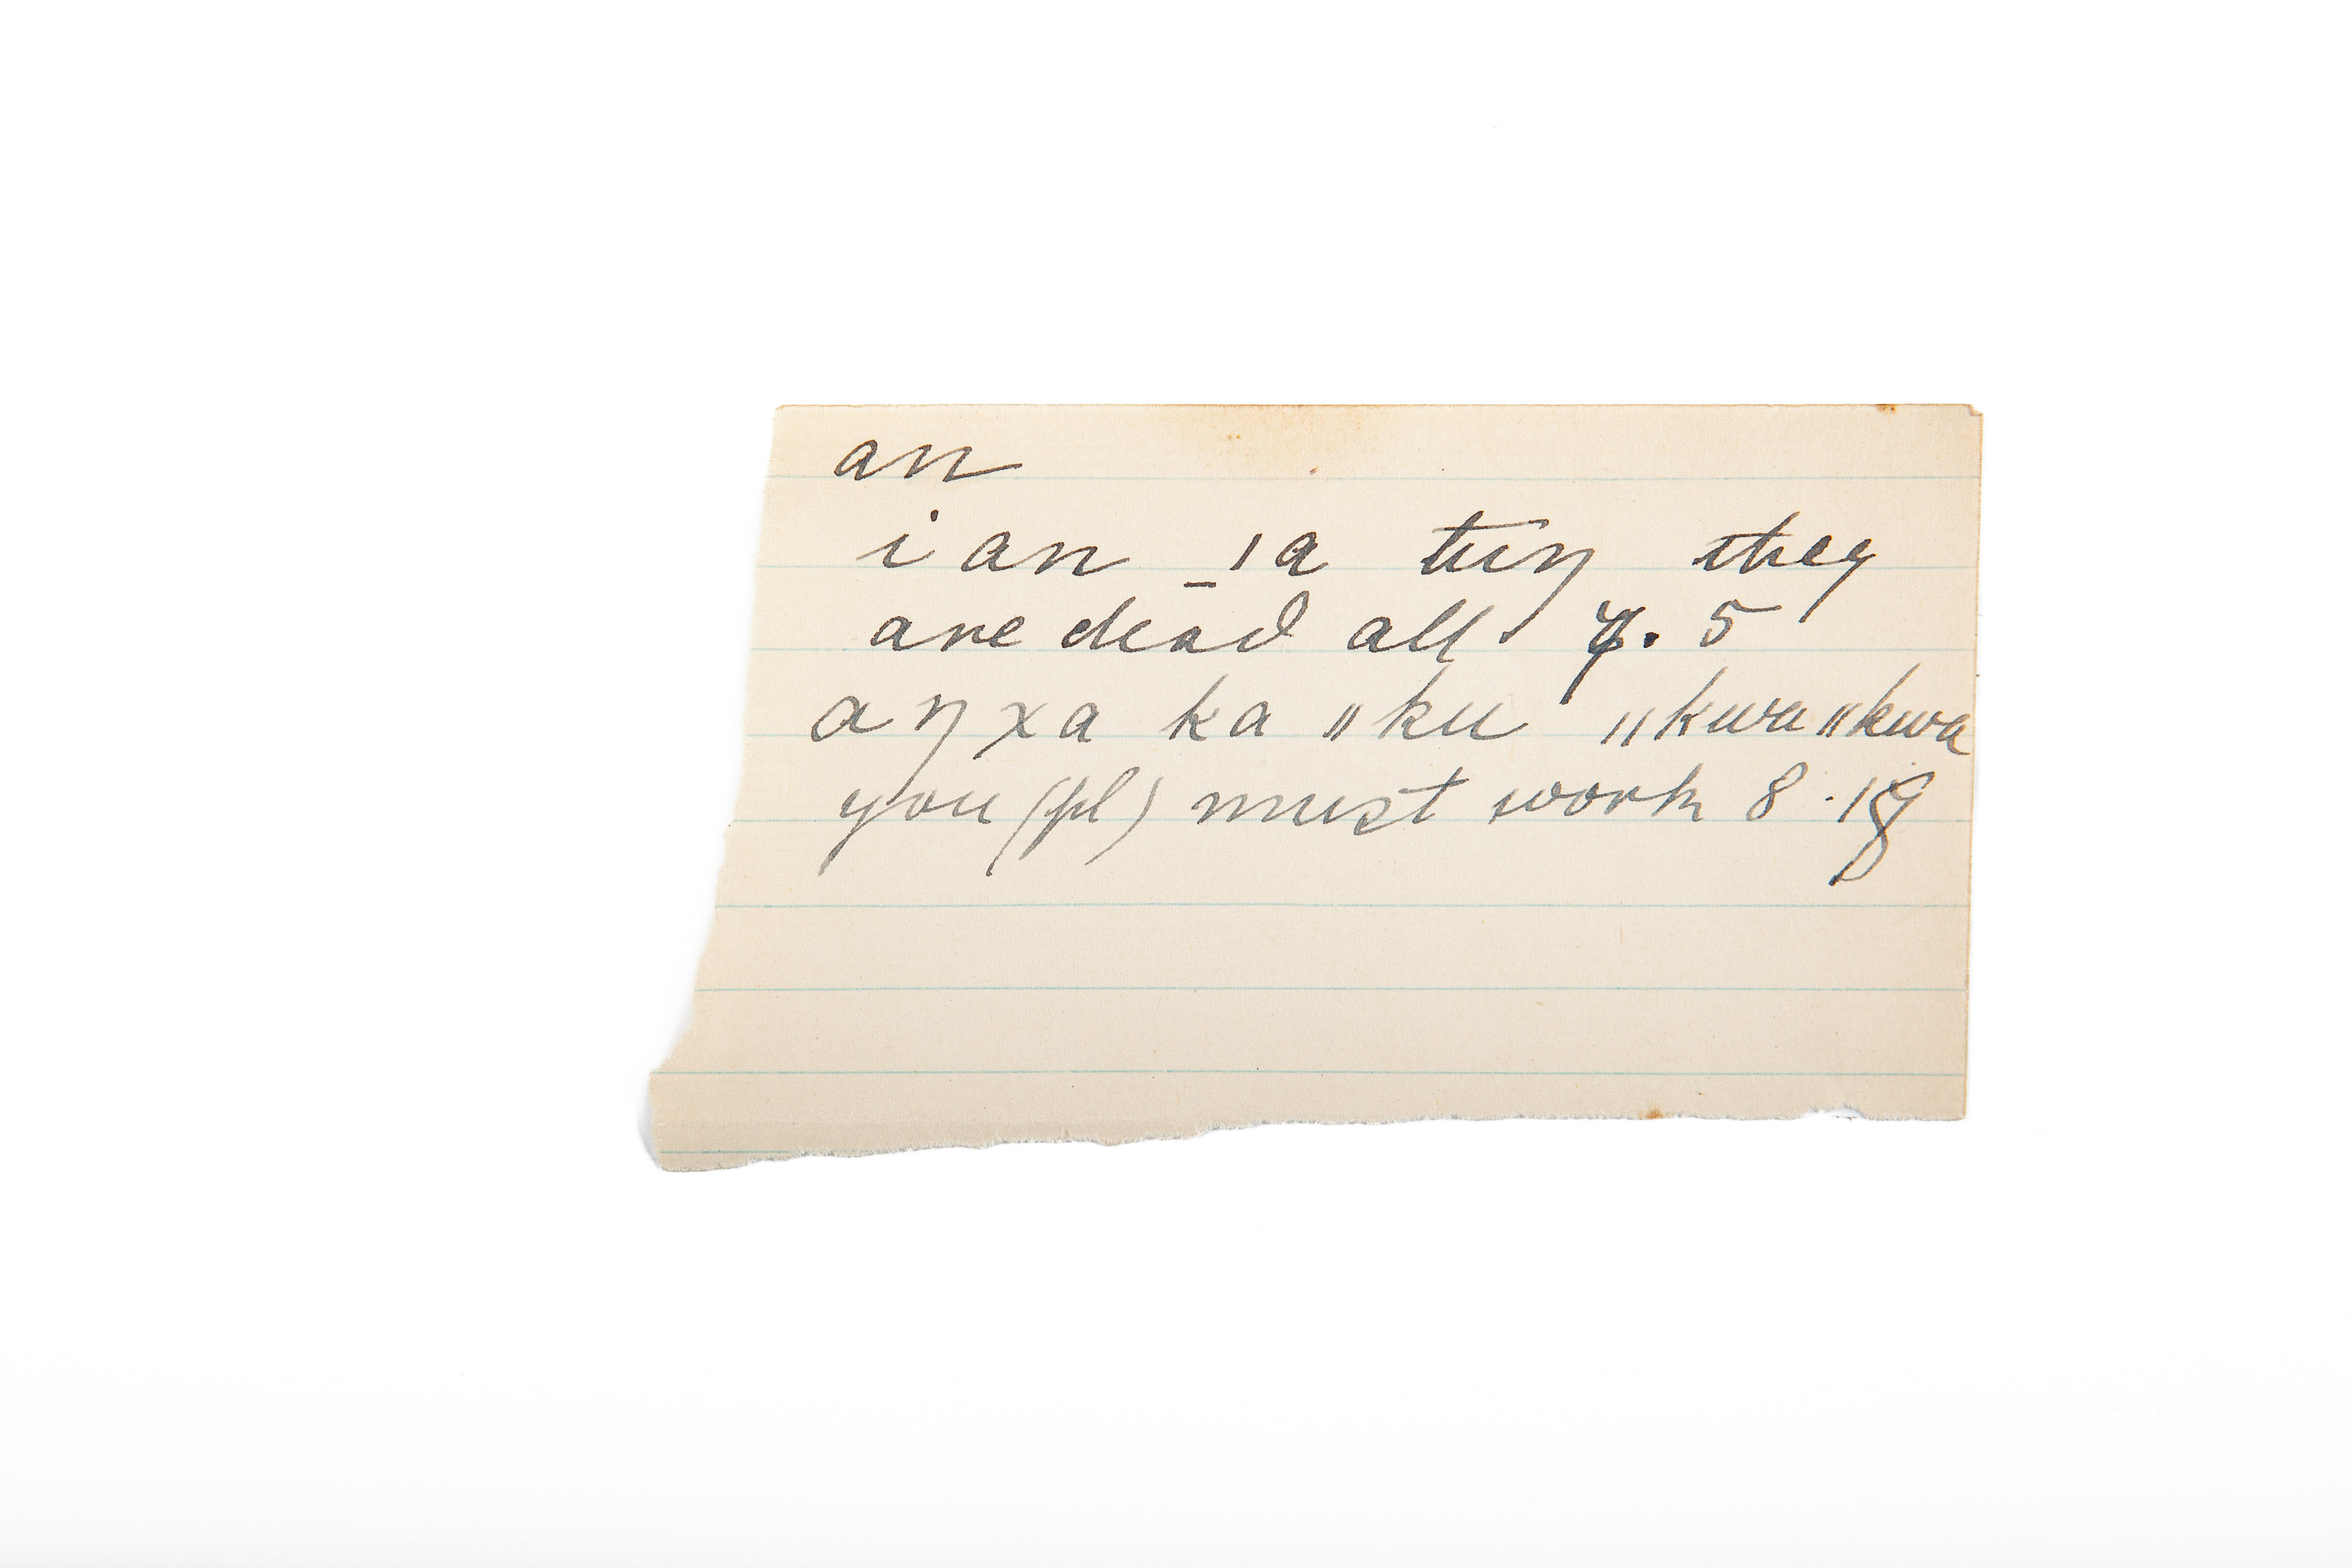 an
i an _ǀa tuŋ they
are dead all. 7. 5
aŋxa ka ǁku ǁkwa ǁkwa
you (pl) must work 8.